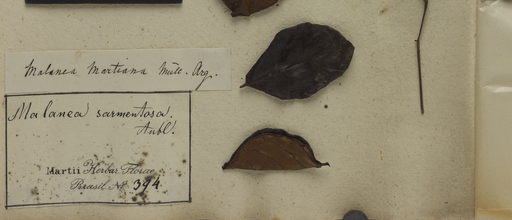 Malanea Martiana Müll. Arg.
Malanea sarmentosa.
Aubl!
Martii Herbar. Florae
Brasil. No. 394